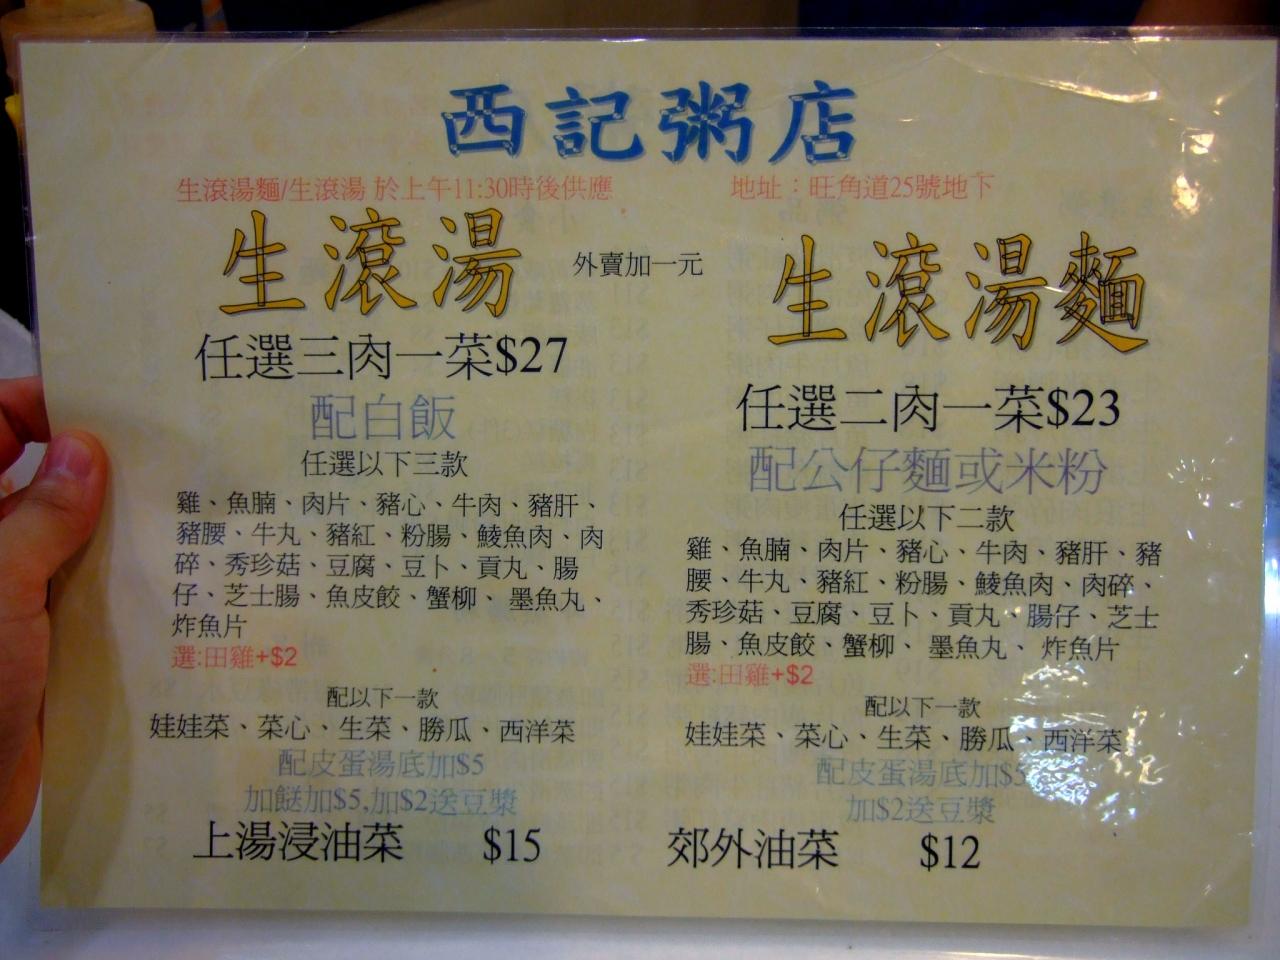 西記粥店
生滾湯麵/生滾湯 於上午11:30時後供應
地址：旺角道25號地下
生滾湯
外賣加一元
任選三肉一菜$27
配白飯
任選以下三款
雞、魚腩、肉片、豬心、牛肉、豬肝、
豬腰、牛丸、豬紅、粉腸、鯪魚肉、肉
碎、秀珍菇、豆腐、豆卜、貢丸、腸
仔、芝士腸、魚皮餃、蟹柳、墨魚丸、
炸魚片
選:田雞+$2
配以下一款
娃娃菜、菜心、生菜、勝瓜、西洋菜
配皮蛋湯底加$5
加餸加$5,加$2送豆漿
上湯浸油菜 $15
生滾湯麵
任選二肉一菜$23
配公仔麵或米粉
任選以下二款
雞、魚腩、肉片、豬心、牛肉、豬肝、豬
腰、牛丸、豬紅、粉腸、鯪魚肉、肉碎、
秀珍菇、豆腐、豆卜、貢丸、腸仔、芝士
腸、魚皮餃、蟹柳、墨魚丸、炸魚片
選:田雞+$2
配以下一款
娃娃菜、菜心、生菜、勝瓜、西洋菜
配皮蛋湯底加$5
加$2送豆漿
郊外油菜 $12